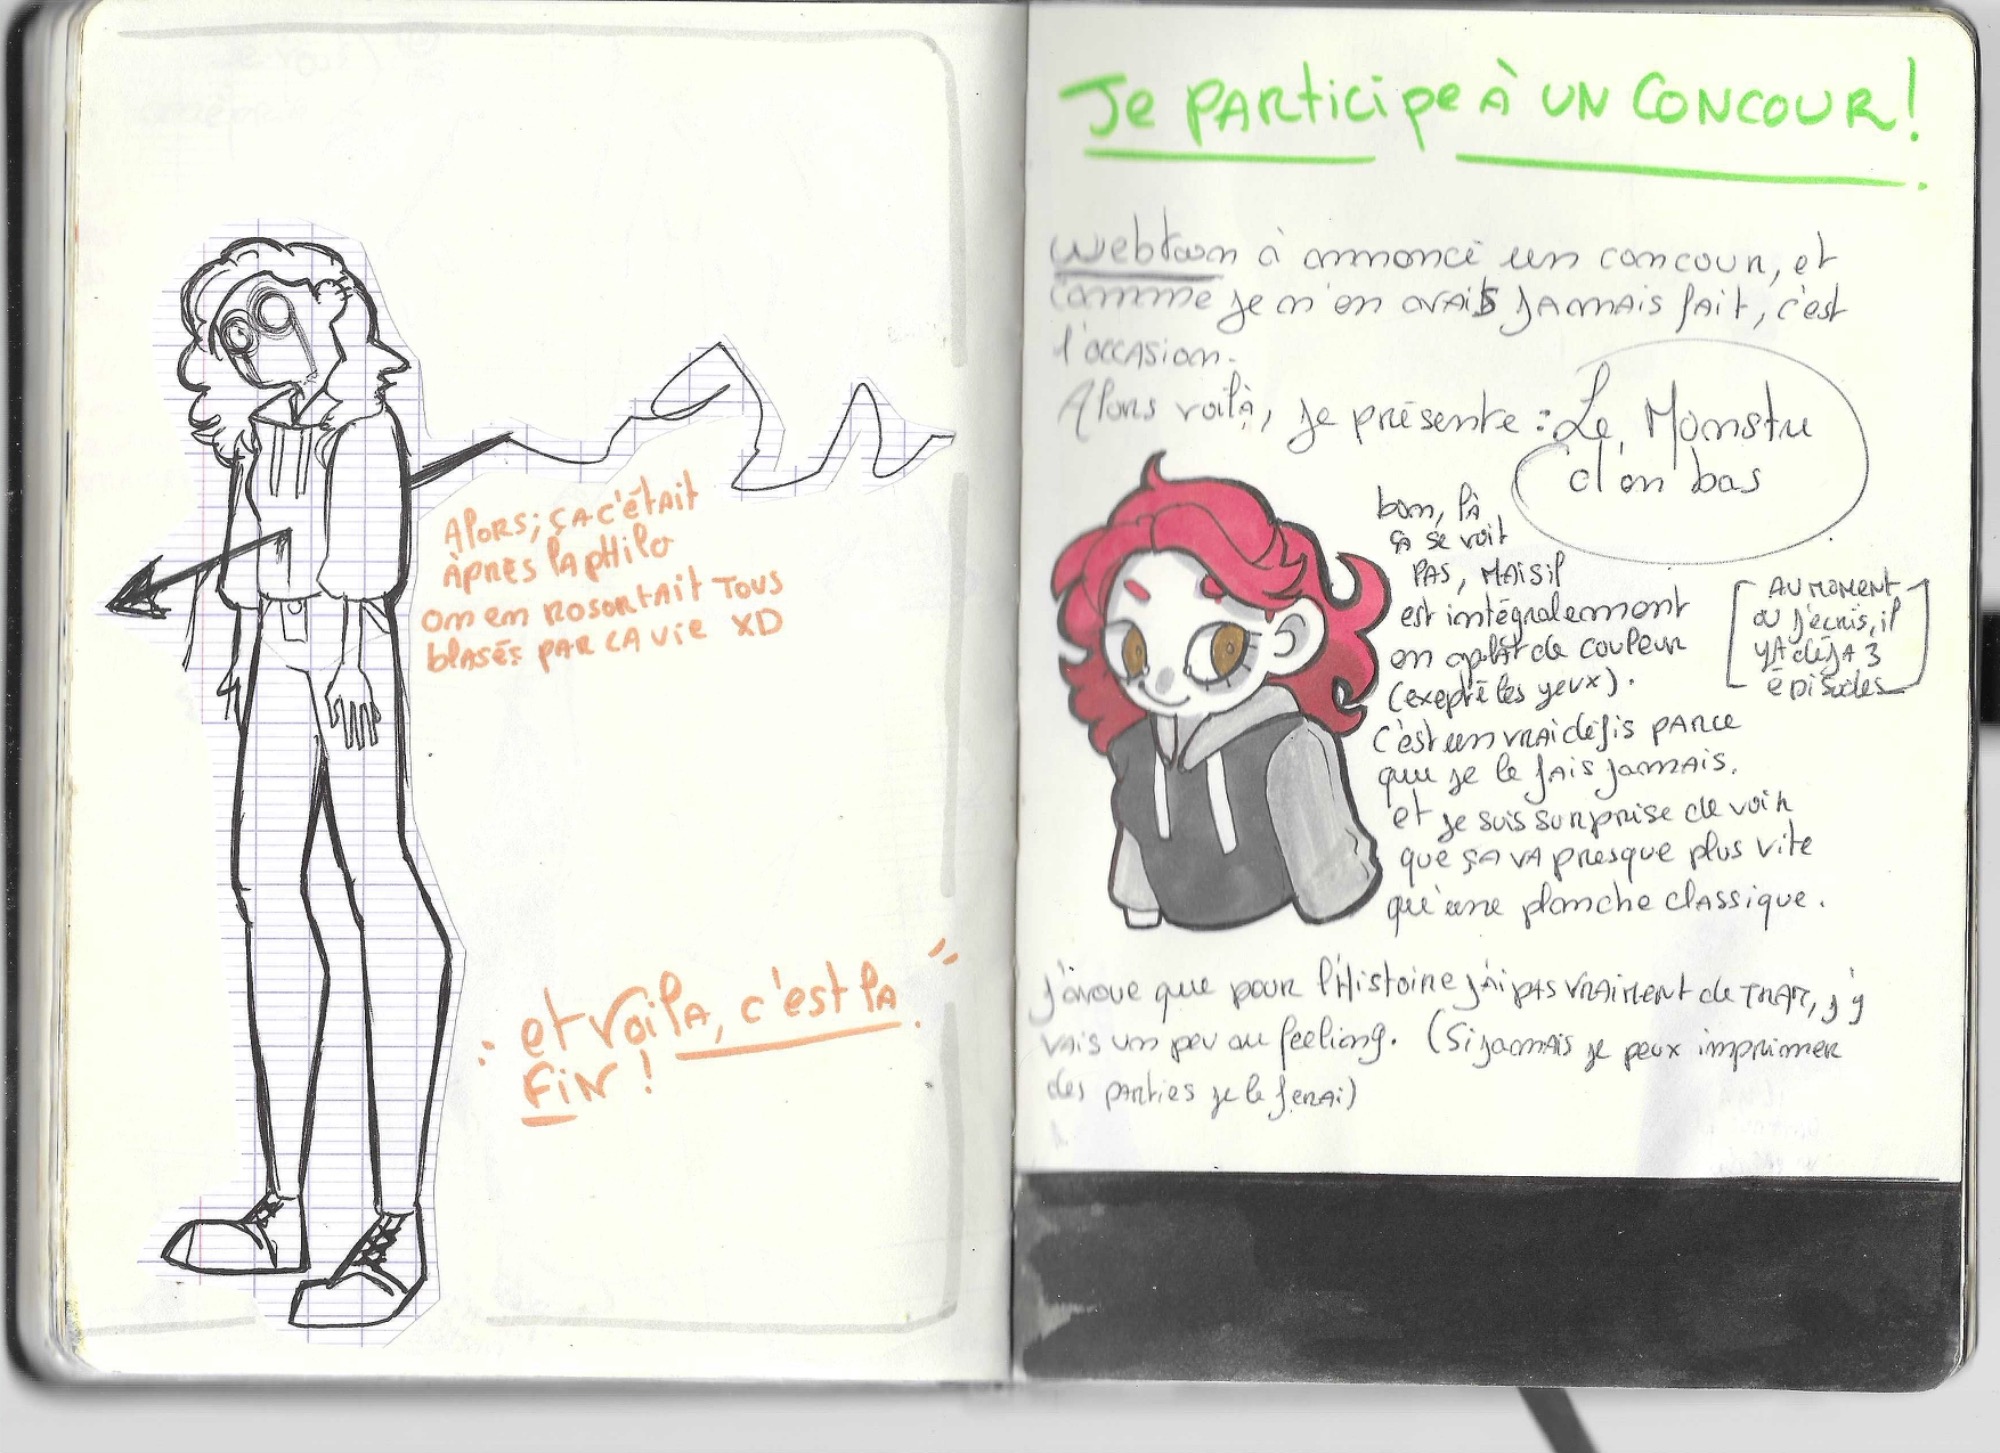 Alors, ça c'était
Après la philo
on en rosortait tous
blasés par la vie XD
et voila, c'est la
fin !
Je participe à un concour !
Webtoon à annoncé un concour, et
comme je n'en avais jamais fait, c'est
l'occasion.
Alors voilà, je présente : Le Monstre
d'en bas
bon, là
ça se voit
pas, mais il
est intégralement
en aplat de couleur
(exepté les yeux).
c'est un vrai défis parce
que je le fais jamais.
et je suis surprise de voir
que ça va presque plus vite
qu'une planche classique.
[ Au moment
où j'écris, il
y a déjà 3
épisodes ]
J'avoue que pour l'histoire j'ai pas vraiment de , j'y
vais un peu au feeling. (Si jamais je peux imprimer
des parties je le ferai)